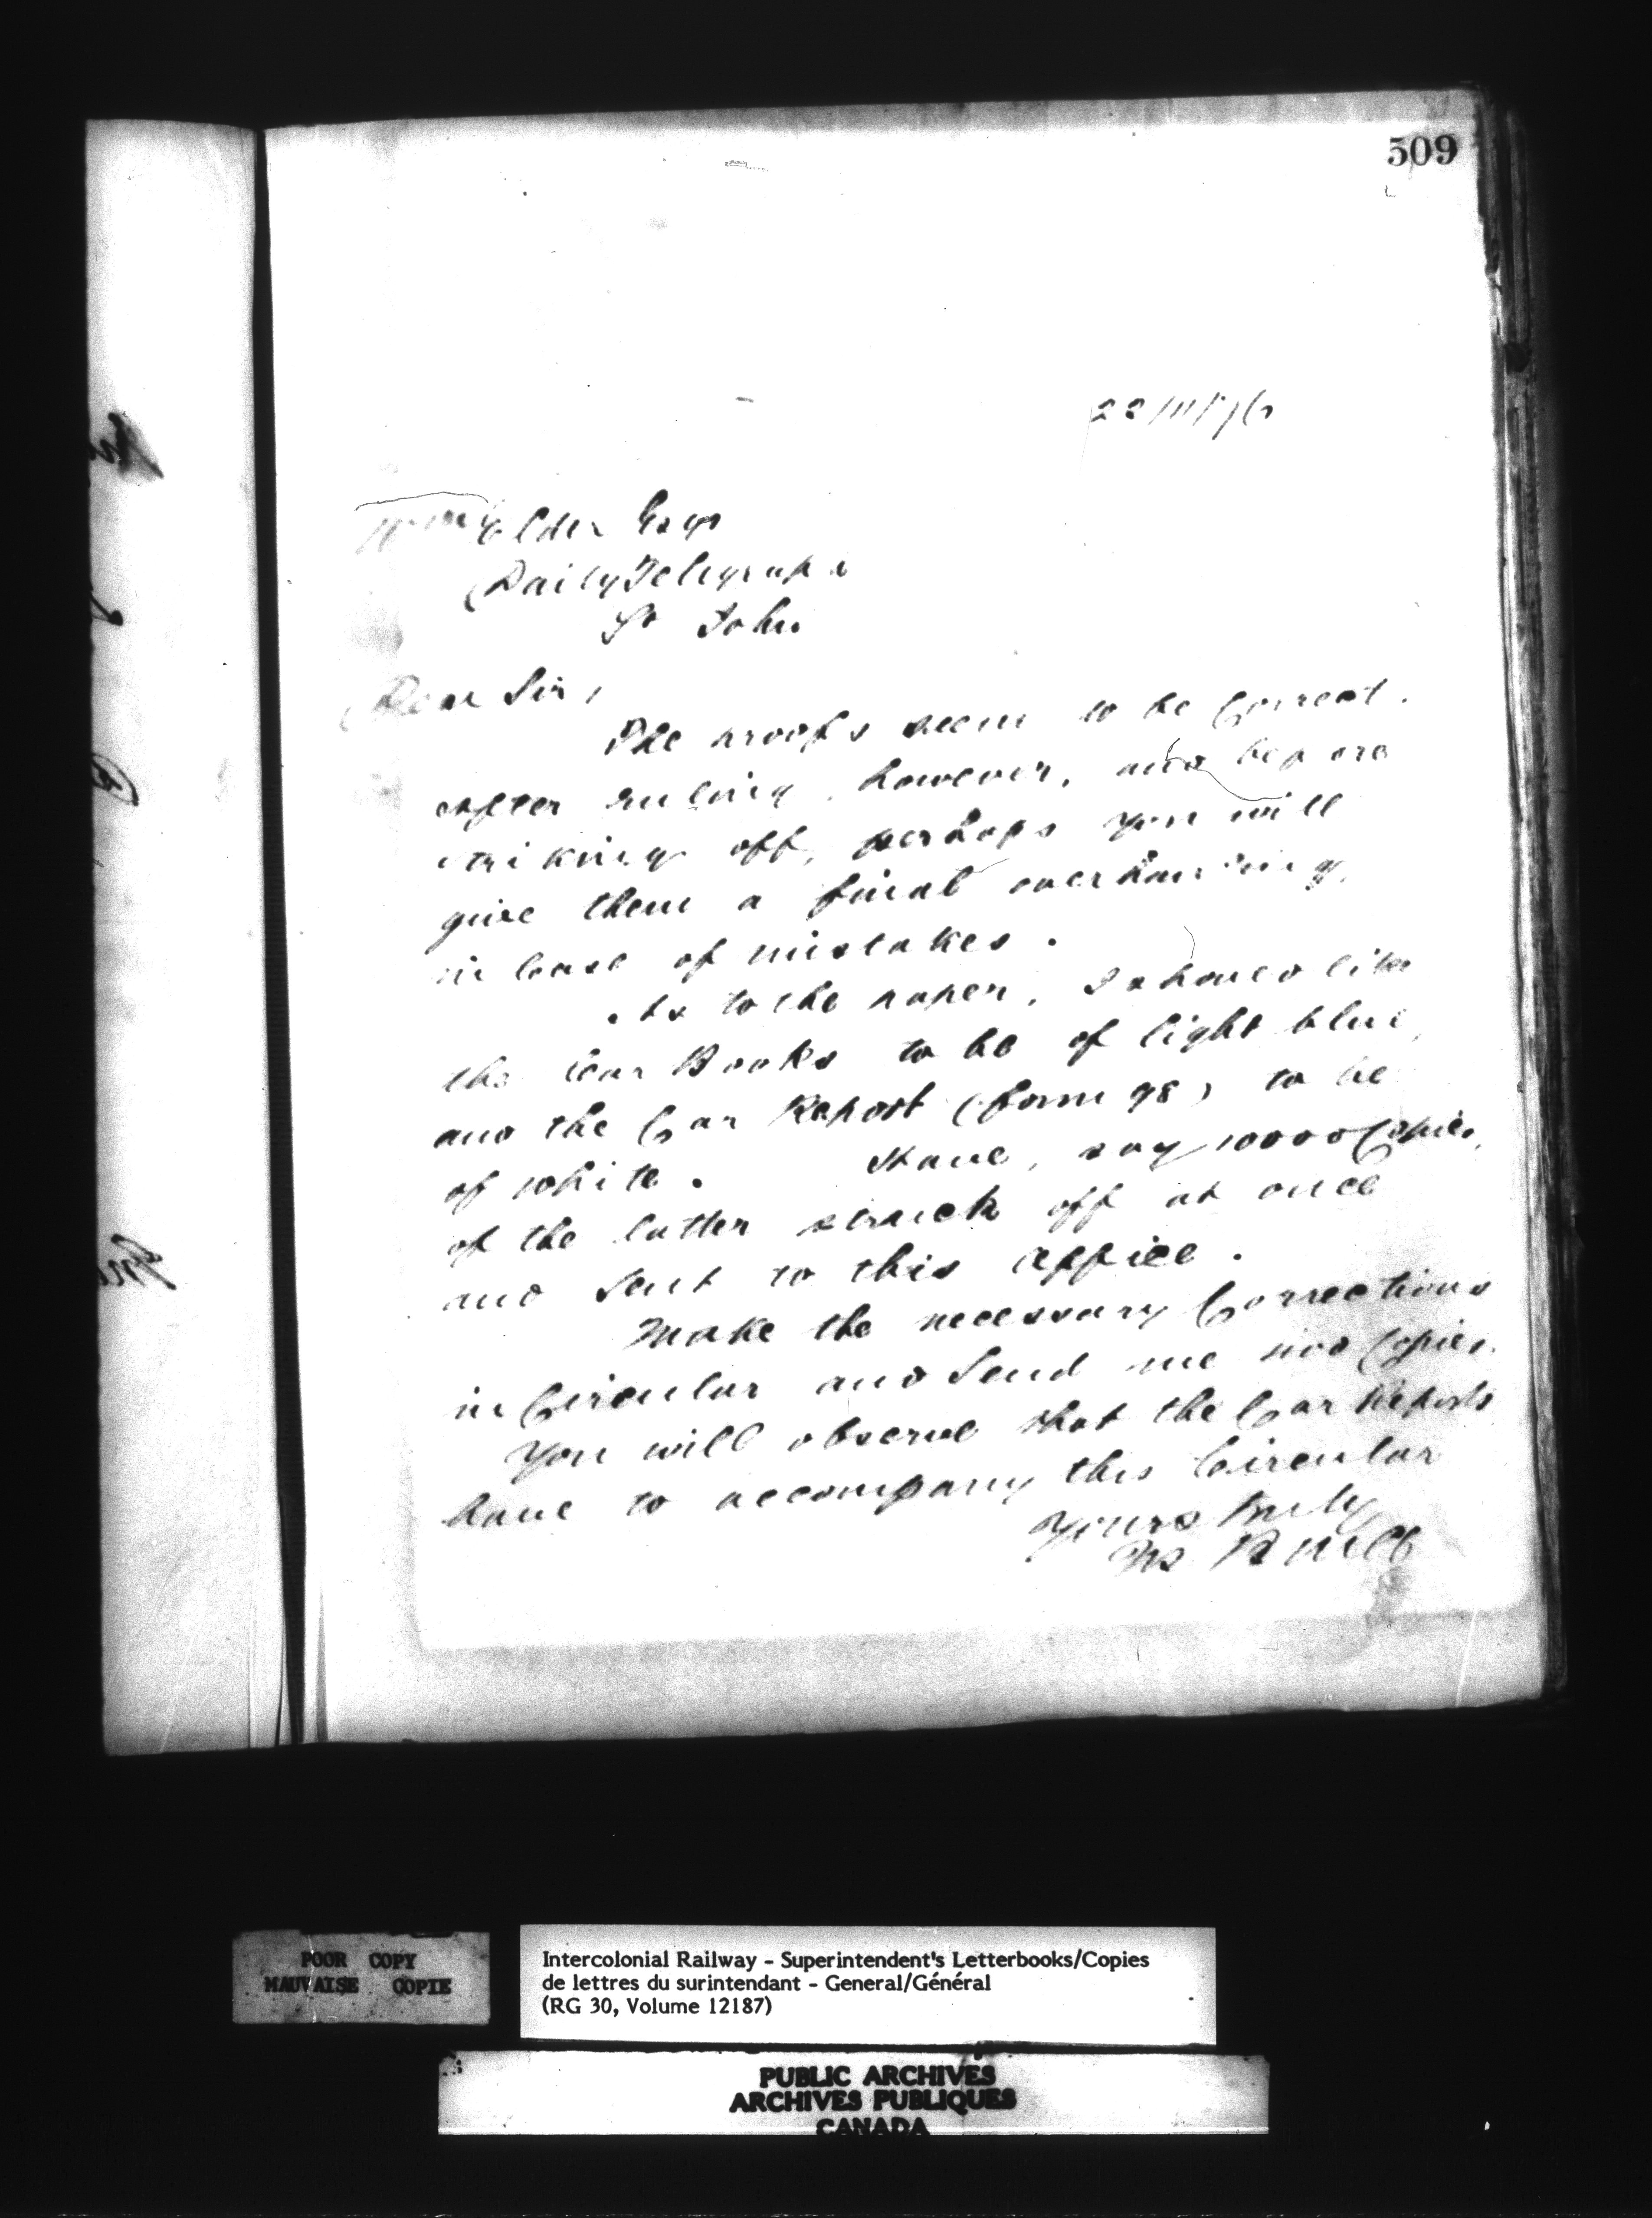 509
22/11/76
Wm Elder Esqr
Daily Telegraph
St John
Dear Sir,
The proofs seem to be Correct.
After ruling, however, and before
striking off, perhaps you will
give them a final overhauling,
in Case of mistakes.
As to the paper, I should like
the Car Books to be of light blue,
and the Car Report (form 98) to be
of white. Have, say 10000 Copies,
of the latter struck off at once
and Sent to this Office.
Make the necessary Corrections
in Circular and Send me Copies.
You will observe that the Car Reports
have to accompany this Circular
Yours truly
POOR COPY
MAUVAISE COPIE
Intercolonial Railway - Superintendent's Letterbooks/Copies
de lettres du surintendant - General/Général
(RG 30, Volume 12187)
PUBLIC ARCHIVES
ARCHIVES PUBLIQUES
CANADA